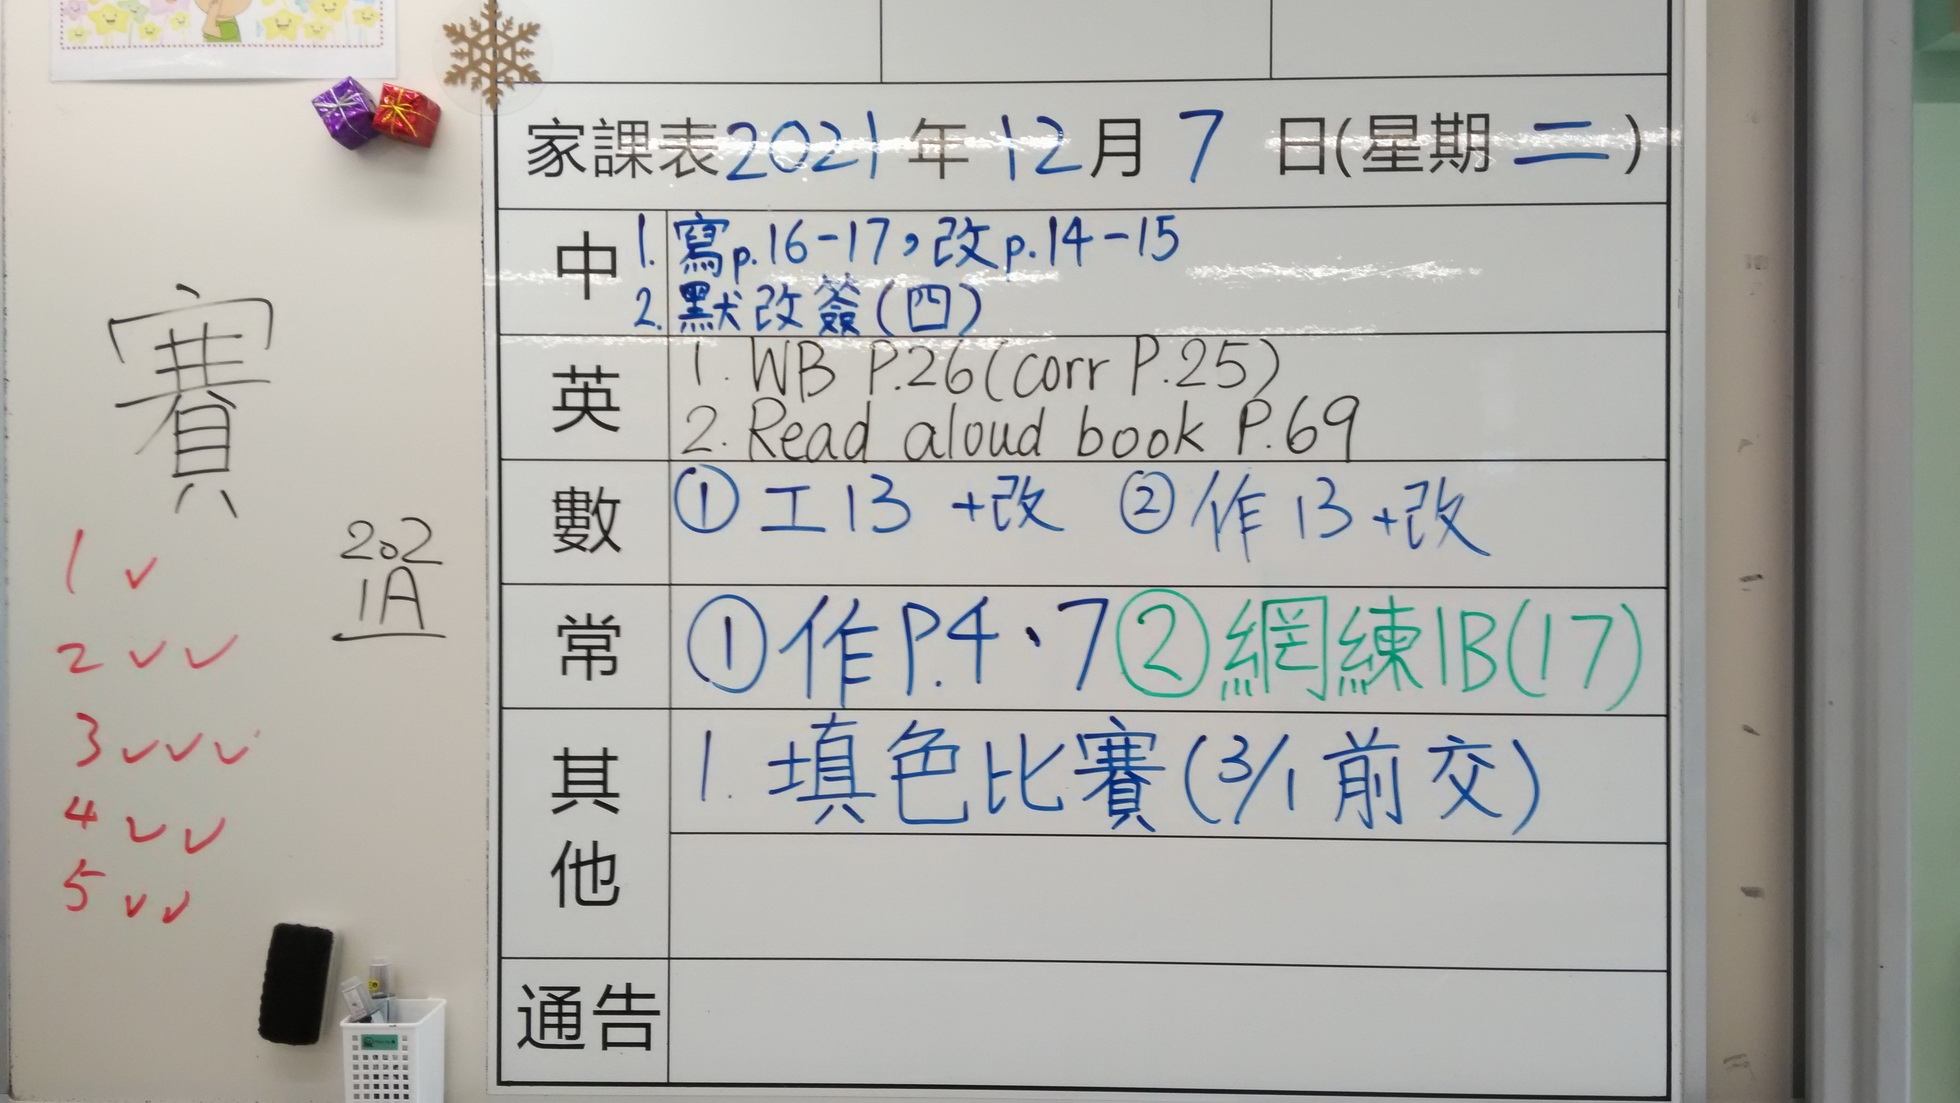 家課表2021年12月7日(星期二)
中
1. 寫p.16-17，改p.14-15
2. 默改簽(四)
英
1. WB P.26(corr P.25)
2. Read aloud book P.69
數
① 工13 +改 ② 作13 +改
常
① 作P.4、7 ② 網練1B(17)
其他
1. 填色比賽(3/1前交)
通告
賽
202
1A
1 ✓
2 ✓✓
3 ✓✓✓
4 ✓✓
5 ✓✓